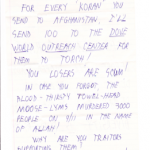 FOR EVERY KORAN YOU
SEND TO AFGHANISTAN, I'LL
SEND 100 TO THE DOVE
WORLD OUTREACH CENTER FOR
THEM TO TORCH!
YOU LOSERS ARE SCUM!
IN CASE YOU FORGOT THE
BLOOD-THIRSTY TOWEL-HEAD
MOOSE-LYMS MURDERED 3000
PEOPLE ON 9/11 IN THE NAME
OF ALLAH!
WHY ARE YOU TRAITORS
SUPPORTING THEM?